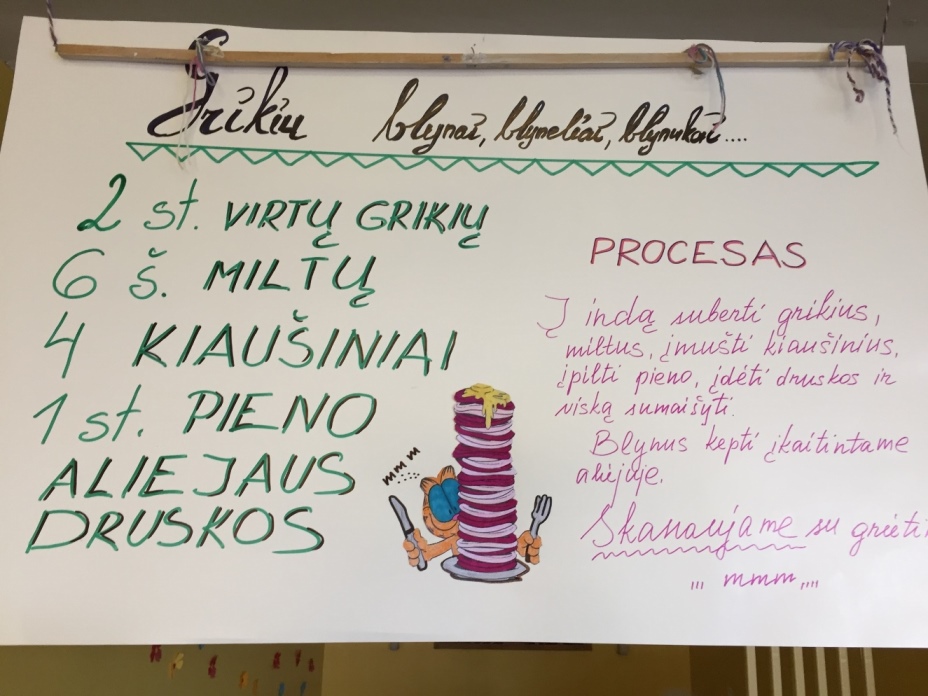 Grikių blynai, blyneliai, blynukai....
2 st. VIRTŲ GRIKIŲ
6 š. MILTŲ
4 KIAUŠINIAI
1 st. PIENO
ALIEJAUS
DRUSKOS
mmm
PROCESAS
Į indą suberti grikius,
miltus, įmušti kiaušinius,
įpilti pieno, įdėti druskos ir
viską sumaišyti.
Blynus kepti įkaitintame
aliejuje.
Skanaujame su
... mmm....